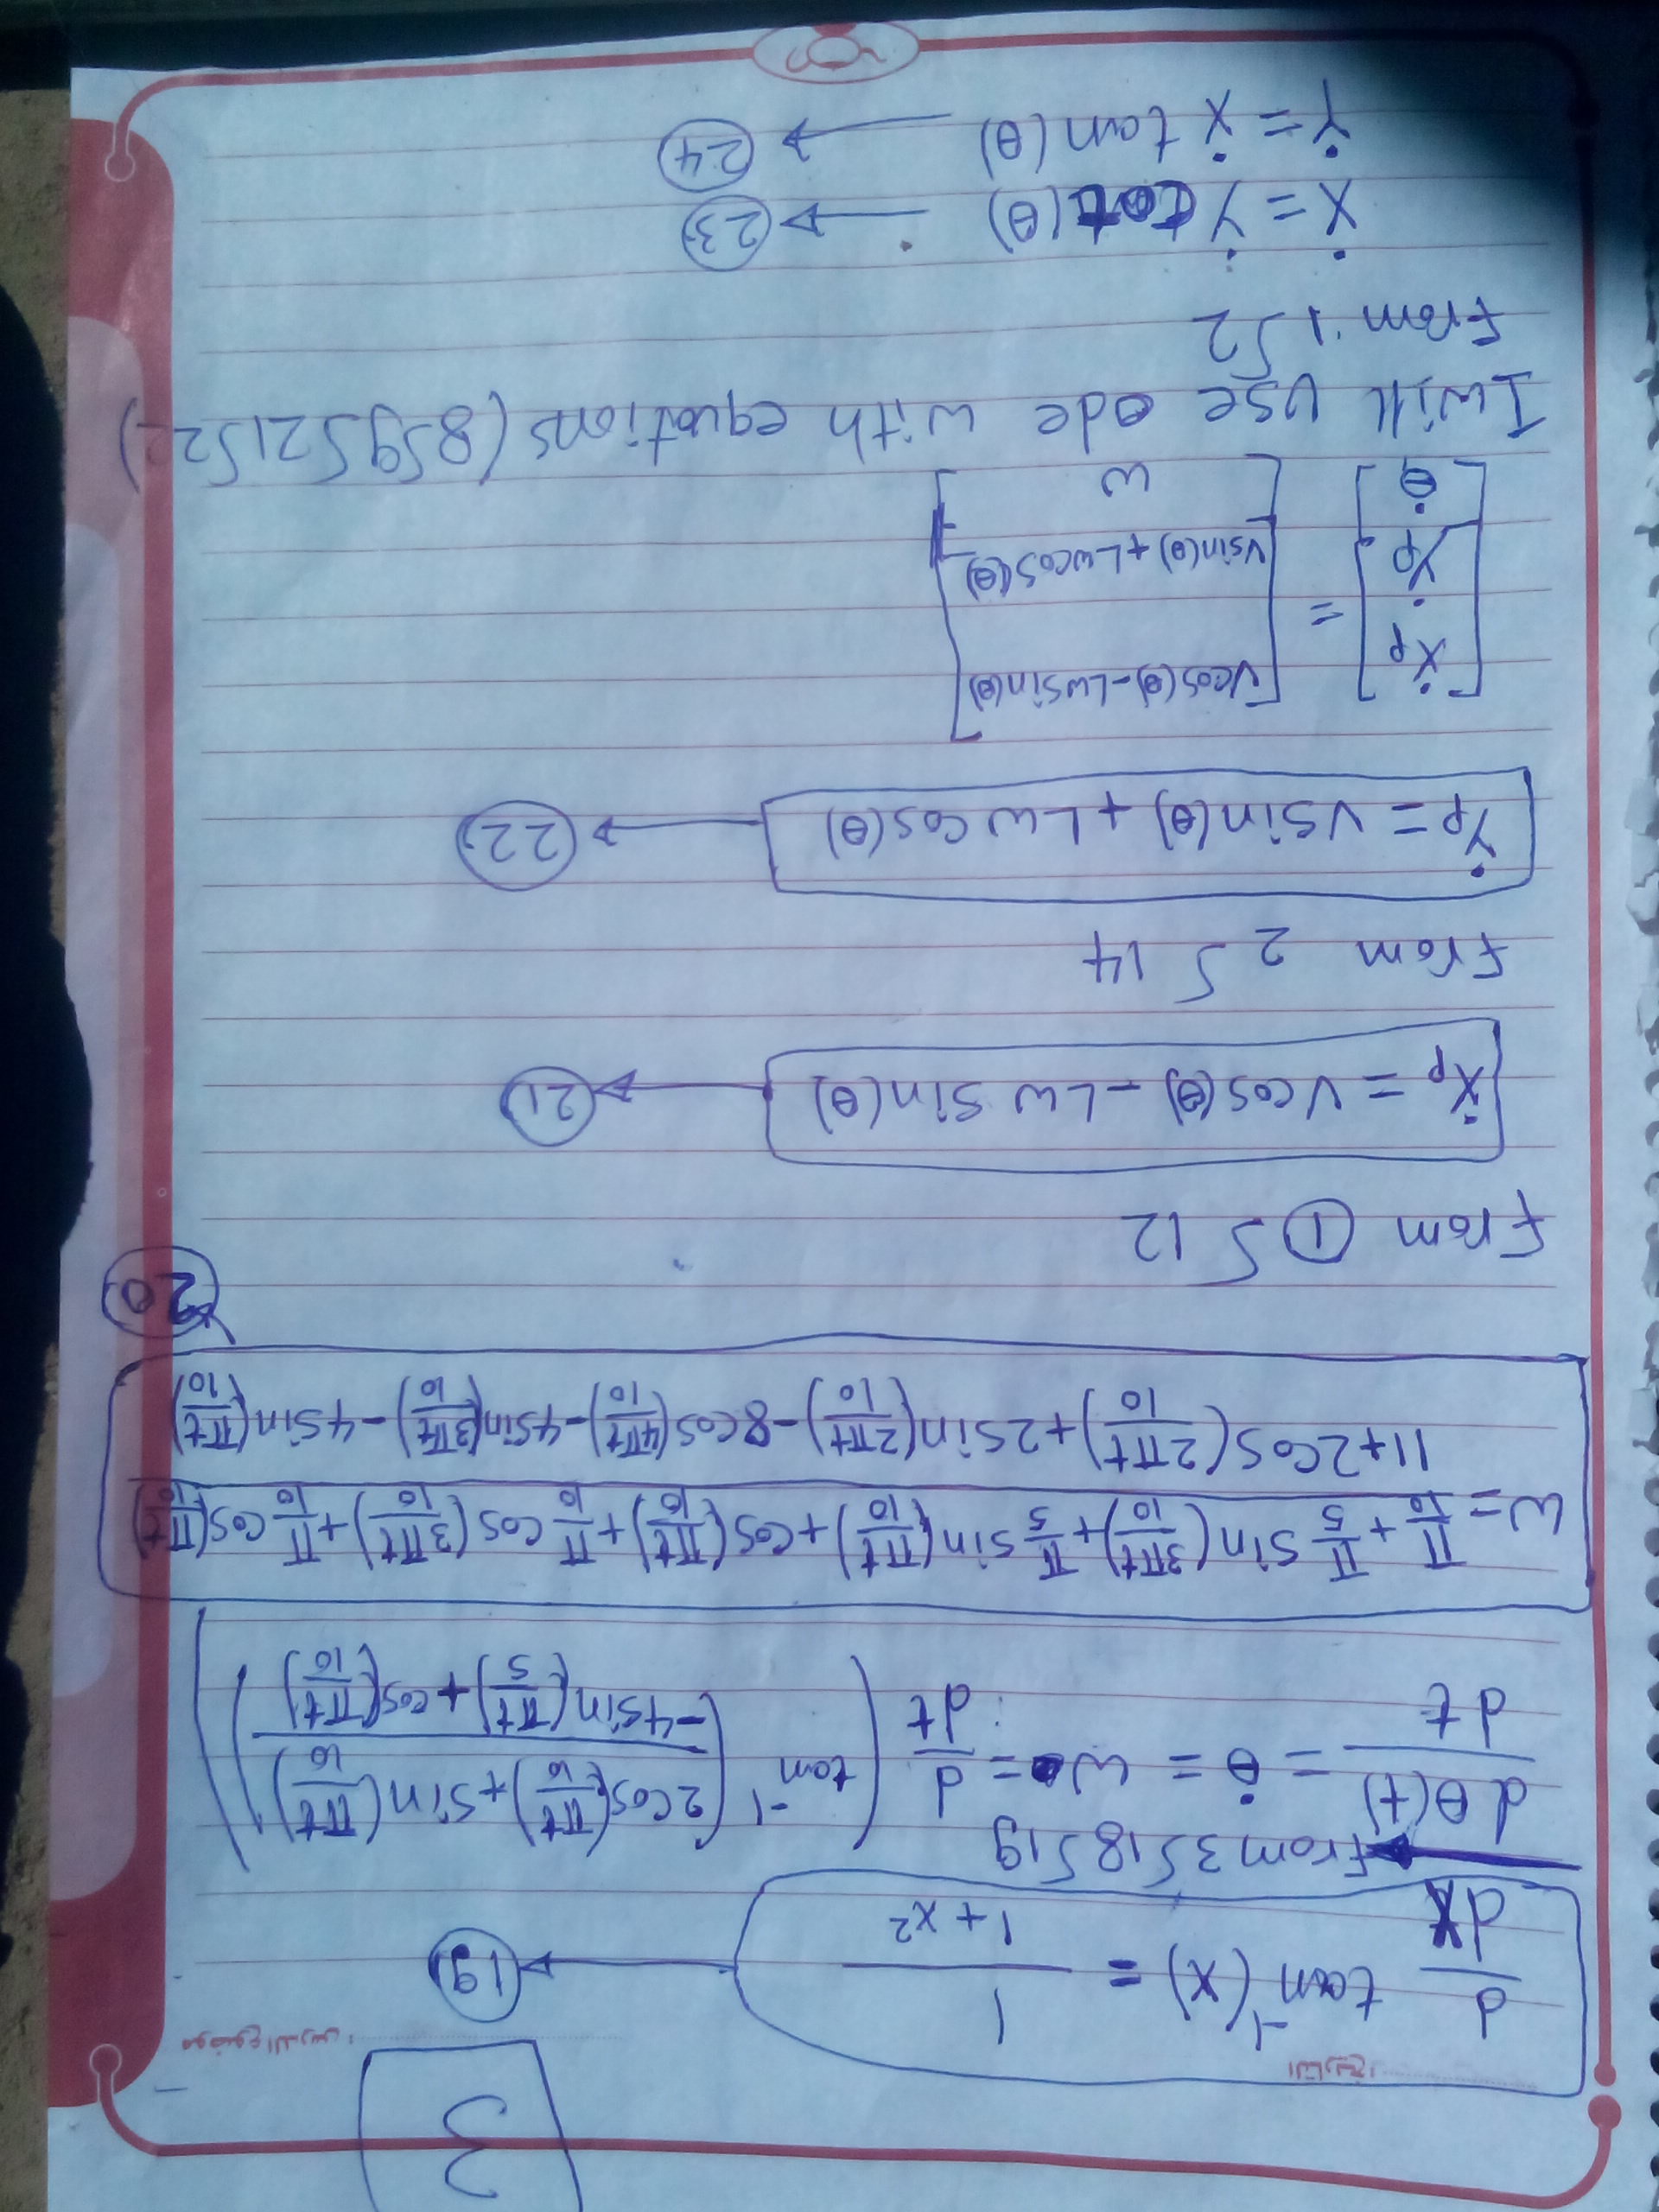 3
التاريخ:
موضوع الدرس:
d/dx tan⁻¹(x) = 1/(1+x²) → 19
From 3 ∫ 18 ∫ 19
dθ(t)/dt = θ̇ = w = d/dt (tan⁻¹((2cos(πt/10)+sin(πt/10))/(-4sin(πt/5)+cos(πt/10))))
w = (π/10 + π/5 sin(3πt/10) + π/5 sin(πt/10) + cos(πt/10) + π/10 cos(3πt/10) + π/10 cos(πt/10)) / (11+2cos(2πt/10)+2sin(2πt/10)-8cos(4πt/10)-4sin(3πt/10)-4sin(πt/10))
20
From ① ∫ 12
Ẋp = Vcos(θ) - Lw sin(θ) → 21
From 2 ∫ 14
Ẏp = Vsin(θ) + Lw cos(θ) → 22
[Ẋp] = [Vcos(θ)-Lwsin(θ)]
[Ẏp] [Vsin(θ)+Lwcos(θ)]
[θ̇] [w]
I will use ode with equations (8 ∫ 9 ∫ 21 ∫ 22)
From 1 ∫ 2
Ẋ = Ẏ cot(θ) → 23
Ẏ = Ẋ tan(θ) → 24